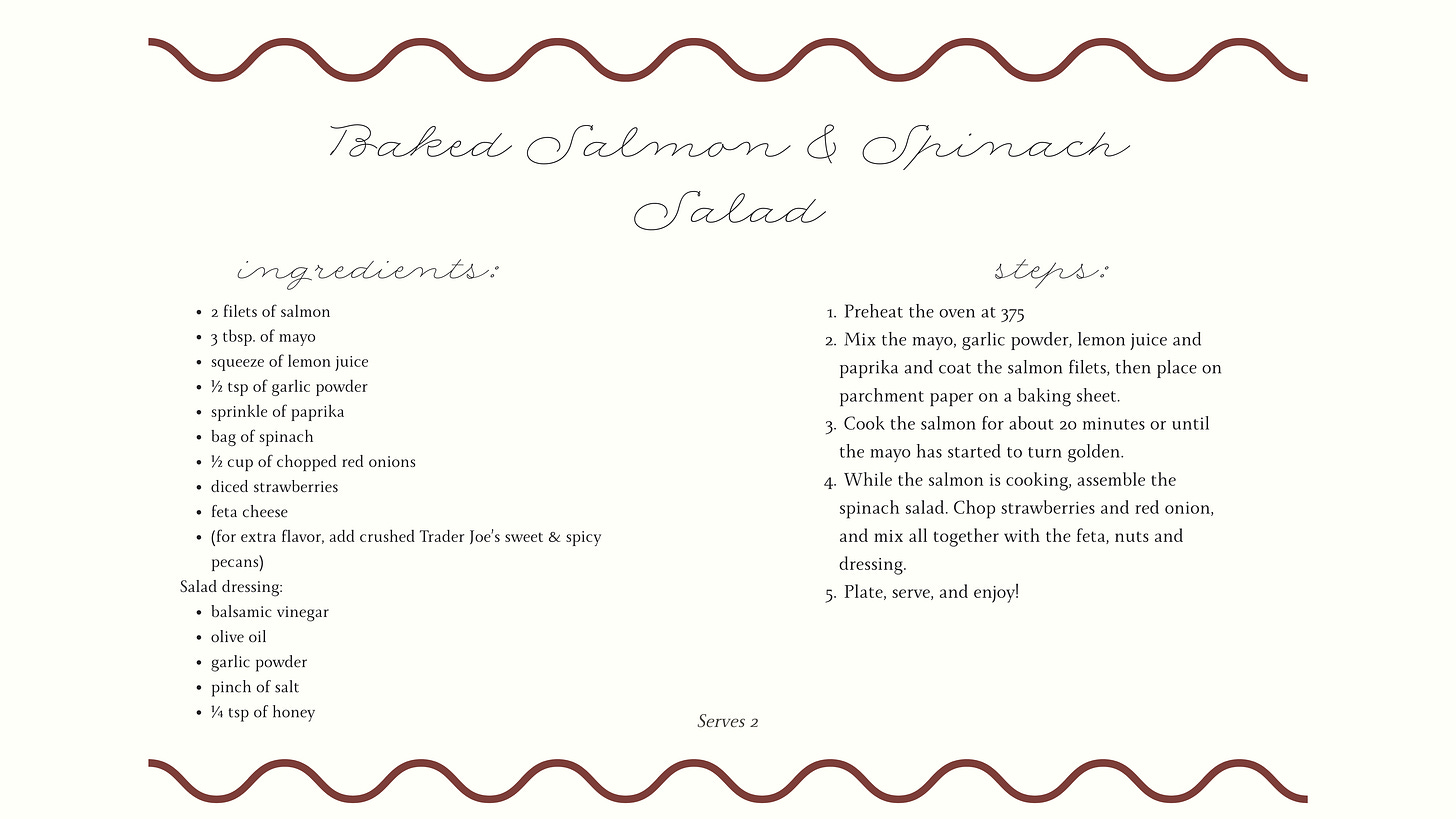 Baked Salmon & Spinach
Salad
ingredients:
• 2 filets of salmon
• 3 tbsp. of mayo
• squeeze of lemon juice
• ½ tsp of garlic powder
• sprinkle of paprika
• bag of spinach
• ½ cup of chopped red onions
• diced strawberries
• feta cheese
• (for extra flavor, add crushed Trader Joe's sweet & spicy
pecans)
Salad dressing:
• balsamic vinegar
• olive oil
• garlic powder
• pinch of salt
• ¼ tsp of honey
steps:
1. Preheat the oven at 375
2. Mix the mayo, garlic powder, lemon juice and
paprika and coat the salmon filets, then place on
parchment paper on a baking sheet.
3. Cook the salmon for about 20 minutes or until
the mayo has started to turn golden.
4. While the salmon is cooking, assemble the
spinach salad. Chop strawberries and red onion,
and mix all together with the feta, nuts and
dressing.
5. Plate, serve, and enjoy!
Serves 2